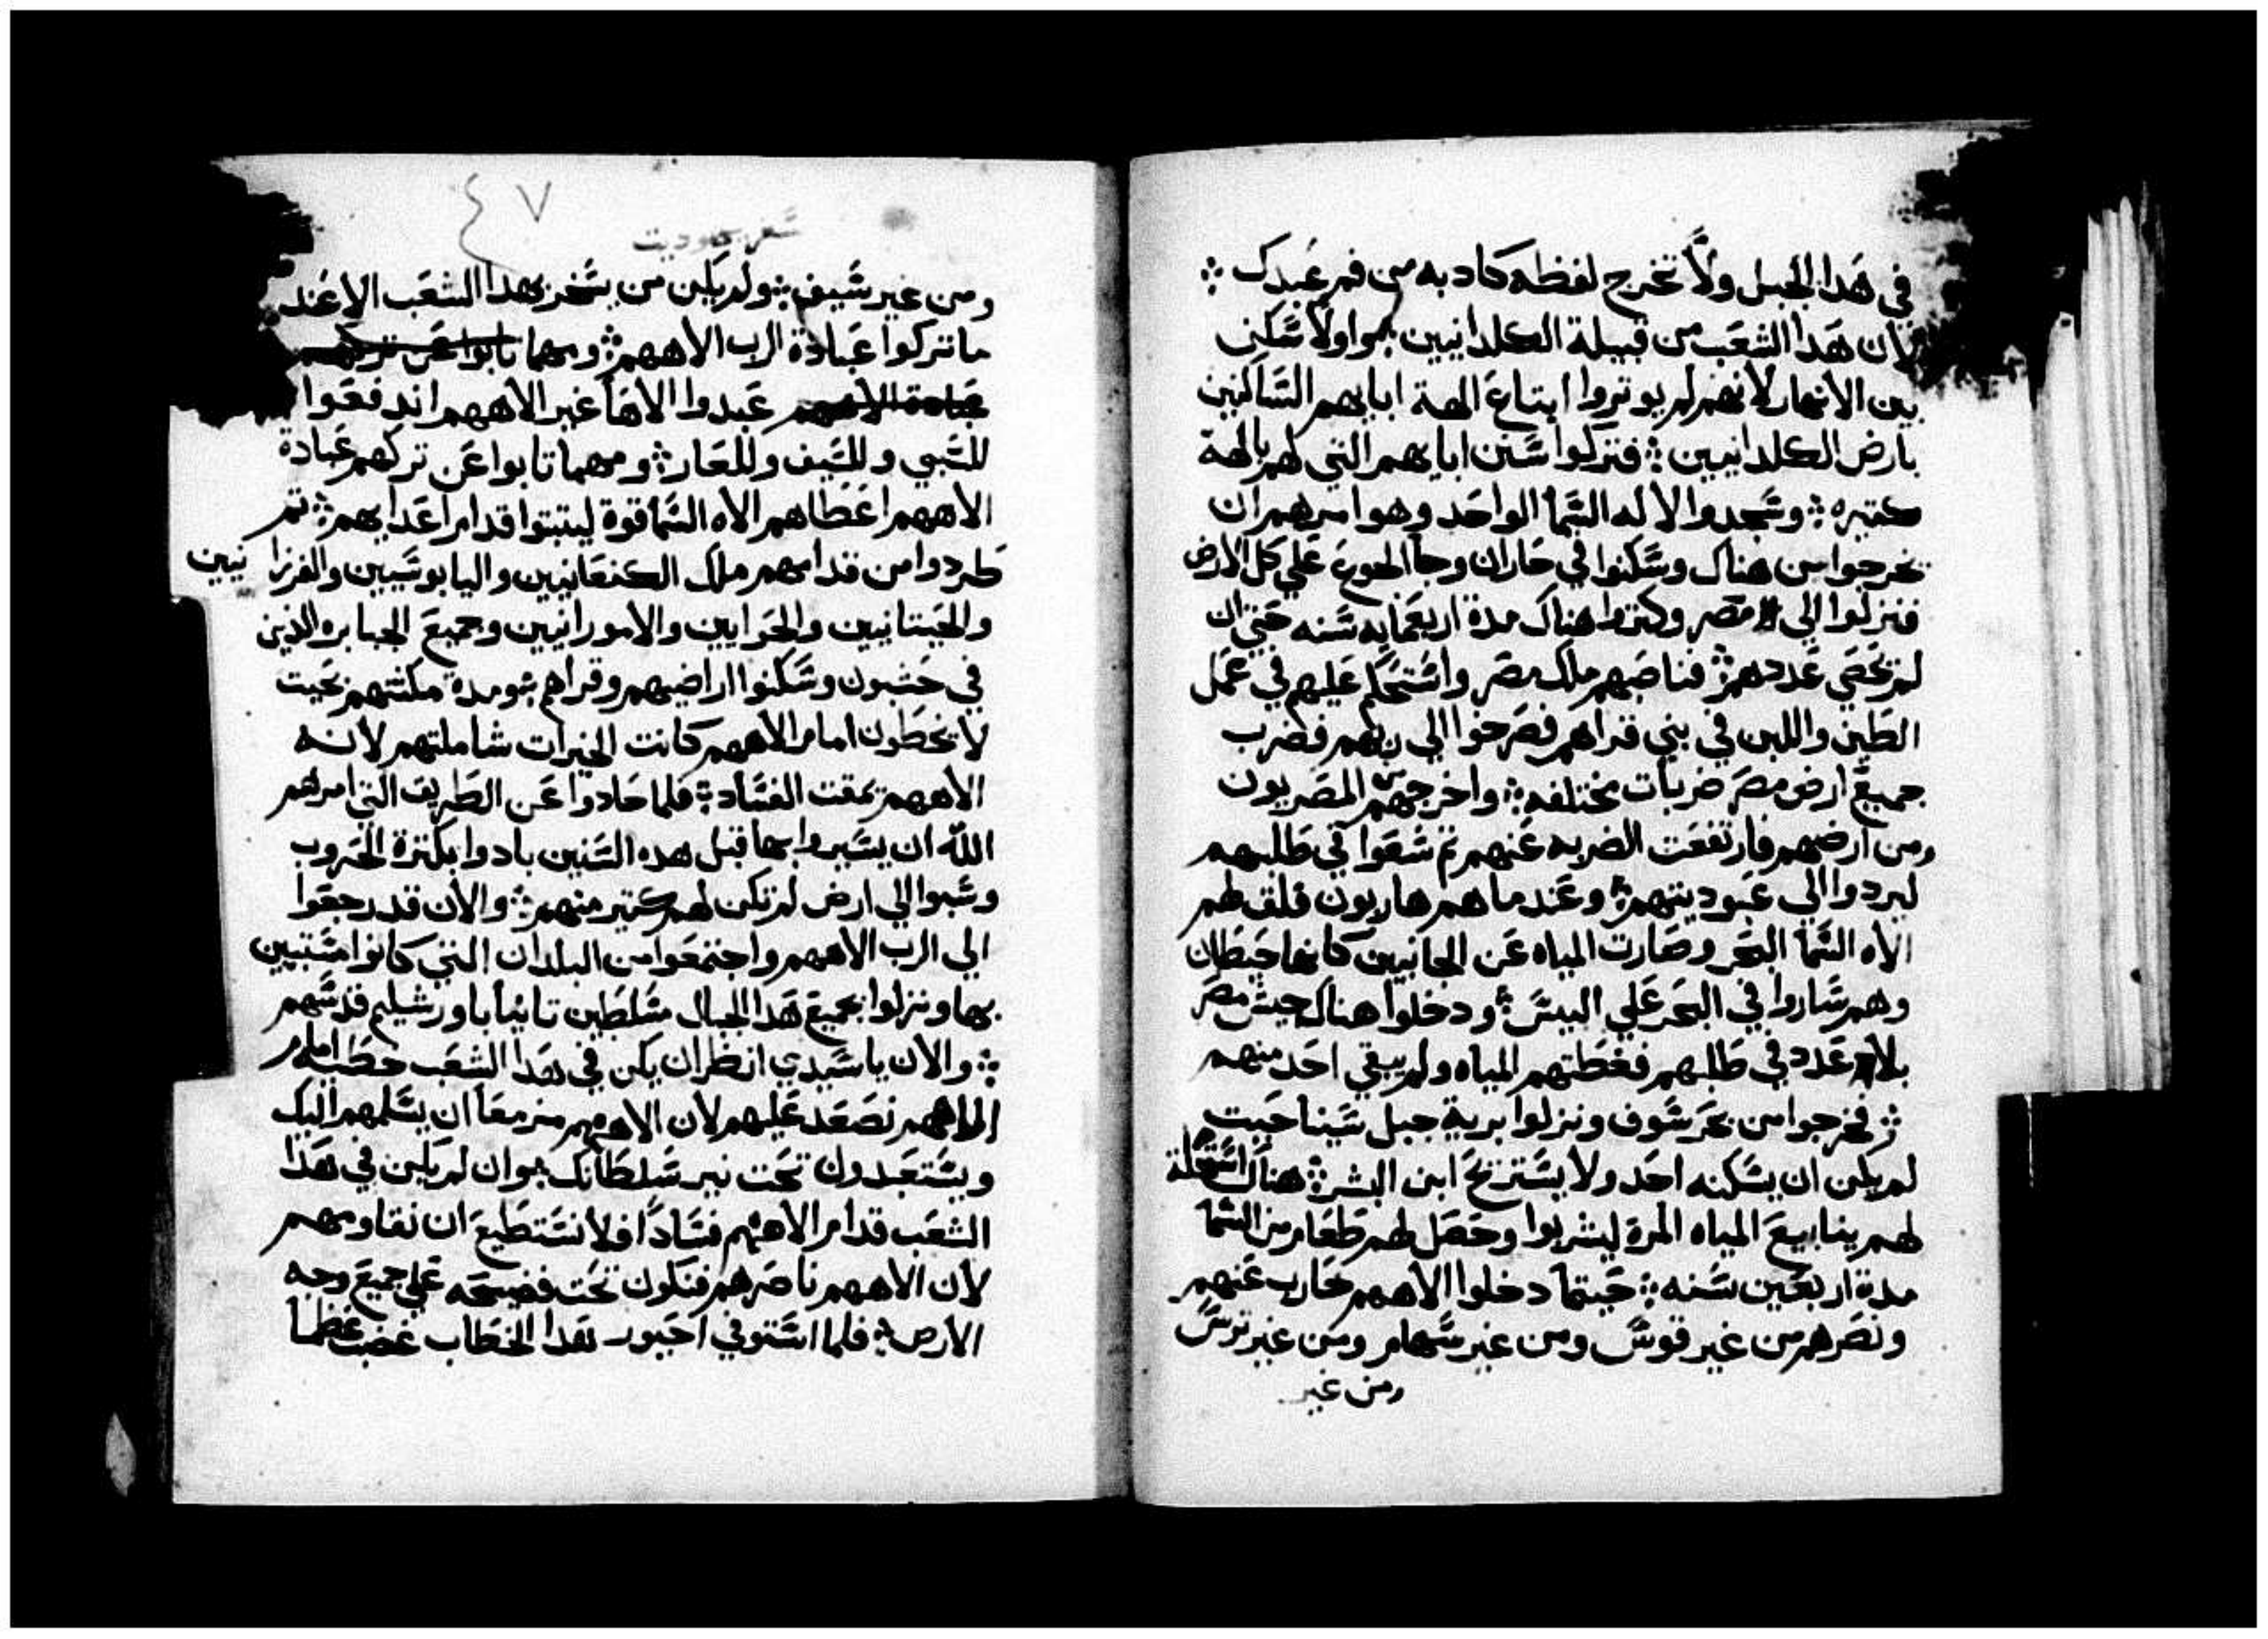 في هدا الجبل ولا تخرج لفظه كادبه من فم عبدك
لان هدا الشعب من قبيلة الكلدانيين هوا ولا سكنى
بين الانهار لانهم لم يوتروا ابتاع الهة ابايهم الساكنين
بارض الكلدانيين فتركوا سنن ابايهم التي لهم بالهة
كتيره وسجدوا لاله السما الواحد وهوا امرهم ان
يخرجوا من هناك وسكنوا في حاران وجا الجوع على كل الارض
فنزلوا الي مصر وكتروا هناك مدة اربعمايه سنه حتي ان
لم يحصي عددهم فناصبهم ملك مصر واستحكم عليهم في عمل
الطين واللبن في بني قراهم فصرخوا الي ربهم فضرب
جميع ارض مصر ضربات مختلفه واخرجهم المصريون
من ارضهم فارتفعت الضربه عنهم تم سعوا في طلبهم
ليردوا الي عبوديتهم وعندما هم هاربون فلق لهم
الاه السما البحر وصارت المياه عن الجانبين كانها حيطان
وهم ساروا في البحر علي اليبس ودخلوا هناك جيش مصر
بلا عدد في طلبهم فغطتهم المياه ولم يبقي احد منهم
فخرجوا من بحر سوف ونزلوا برية جبل سينا حيت
لم يكن ان يسكنه احد ولا يستريح ابن البشر هناك استحلة
لهم ينابيع المياه المرة ليشربوا وحصل لهم طعام من السما
مدة اربعين سنه حيتما دخلوا الاههم حارب عنهم
ونصرهم من غير قوس ومن غير سهام ومن غير ترس
ومن غير
٤٧
سفر يهوديت
ومن غير سيف ولم يكن من يسخر بهدا الشعب الا عند
ما تركوا عبادة الرب الاههم ومهما تابوا عن تركهم
عبادة الاههم عبدوا الاها غير الاههم اندفعوا
للسبي وللسيف وللعار ومهما تابوا عن تركهم عبادة
الاههم اعطاهم الاه السما قوة ليتبتوا قدام اعدايهم تم
طردوا من قدامهم ملك الكنعانيين واليابوسيين والفرزا نيين
والحيتانيين والحوايين والامورانيين وجميع الجبابره الذين
في حشبون وسكنوا اراضيهم وقراهم ومدة مكتهم بحيت
لا يخطون امام الاههم كانت الخيرات شاملتهم لانه
الاههم يمقت الفساد فلما حادوا عن الطريق التي امرهم
الله ان يسيروا بها قبل هده السنين بادوا بكترة الحروب
وسبوا الي ارض لم تكن لهم كتير منهم والان قد رجعوا
الي الرب الاههم واجتمعوا من البلدان التي كانوا مشتتين
بها ونزلوا بجميع هدا الجبال متسلطين تانيا باورشليم قدسهم
والان يا سيدي انظر ان يكن في هدا الشعب خطا امام
الاههم نصعد عليهم لان الاههم مزمعا ان يسلمهم اليك
ويستعبدون تحت نير سلطانك هوان لم يكن في هدا
الشعب قدام الاههم فسادا فلا نستطيع ان نقاومهم
لان الاههم ناصرهم فنكون تحت فضيحه علي جميع وجه
الارض فلما استوفي احيور هدا الخطاب غضب عظما